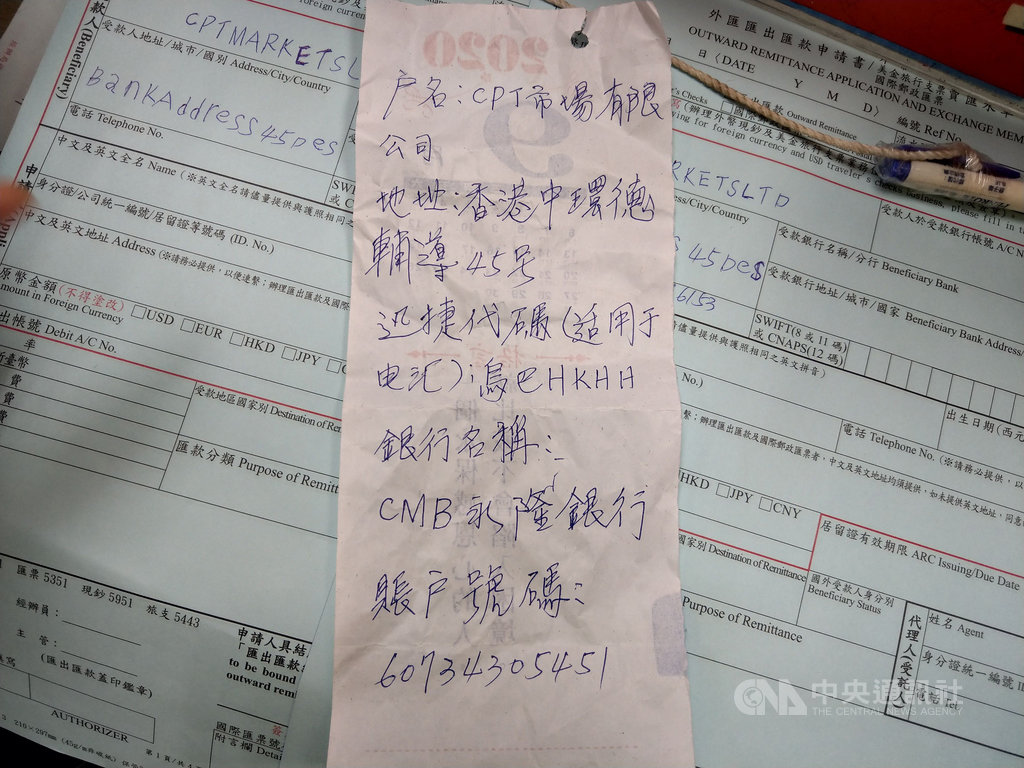 2020
9
户名:CPT市場有限
公司
地址:香港中環德
輔導45号
迅捷代碼(适用于
电汇):烏巴HKHH
銀行名稱:
CMB永隆銀行
賬户號碼:
60734305451
款人(Beneficiary)
CPTMARKETSL
受款人地址/城市/國別 Address/City/Country
BankAddress45Des
電話 Telephone No.
中文及英文全名 Name(※英文全名請儘量提供與護照相同之
身分證/公司統一編號/居留證等號碼 (ID. No.)
中文及英文地址 Address (※請務必提供,以便連繫;辦理匯出匯款及國際
原幣金額(不得塗改)
mount in Foreign Currency
□USD □EUR □HKD □JPY
出帳號 Debit A/C No.
受款地區國家別 Destination of Rem
匯款分類 Purpose of Remitt
匯票 5351 現鈔 5951 旅支 5443
經辦員:
主 管:
(匯出匯款蓋印鑑章)
申請人具結
「匯出匯款
to be bound
outward remi
AUTHORIZER
國際匯票
附言欄 Detai
外匯匯出匯款申請書/美金旅行支票
國際郵政匯票
OUTWARD REMITTANCE APPLICATION AND EXCHANGE MEM
日(DATE Y M D)
編號 Ref No.
Outward Remittance
RKETSLTD
45Des
6153
受款人於受款銀行帳號 A/C N
受款銀行名稱/分行 Beneficiary Bank
受款銀行地址/城市/國家 Beneficiary Bank Address/
SWIFT(8 或 11 碼)
或 CNAPS(12 碼)
出生日期(西元
電話 Telephone No.(※請務必提供,
HKD □JPY □CNY
國家別 Destination of Remittance
居留證有效期限 ARC Issuing/Due Date
國外受款人身分別
Beneficiary Status
Purpose of Remittance
代理人(受託人
姓名 Agent
身分證統一編號 I
中央通訊社
THE CENTRAL NEWS AGENCY